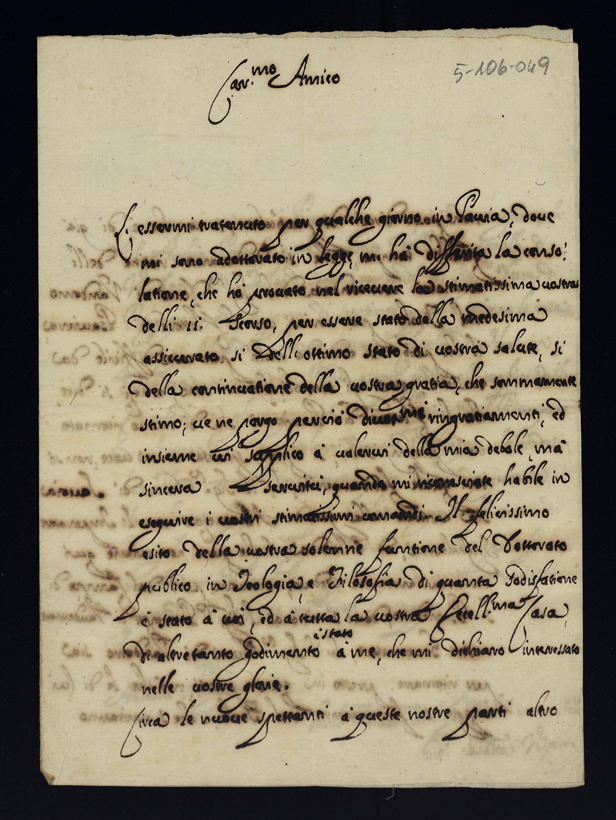 5-106-049
Car.mo Amico
L'essermi trattenuto per qualche giorno in Pavia, dove
mi sono adottorato in legge, mi hà differita la conso-
latione, che hò provato nel ricevere la stimatissima vostra
delli 11: scorso, per essere stato dalla medesima
assicurato si dell'ottimo stato di vostra salute, si
della continuatione della vostra gratia, che sommamente
stimo; ve ne porgo perciò ringratiamenti, ed
insieme vi suplico à valervi della mia debole, mà
sincera servitù, quando mi riconosciate habile in
eseguire i vostri stimatissimi comandi. Il felicissimo
esito della vostra solenne funtione del Dottorato
publico in Teologia, e Filosofia di quanta sodisfatione
è stato à voi, ed à tutta la vostra Ecell.ma Casa,
di altretanto godimento è stato à me, che mi dichiaro interessato
nelle vostre glorie.
Circa le nuove spettanti à queste nostre parti altro